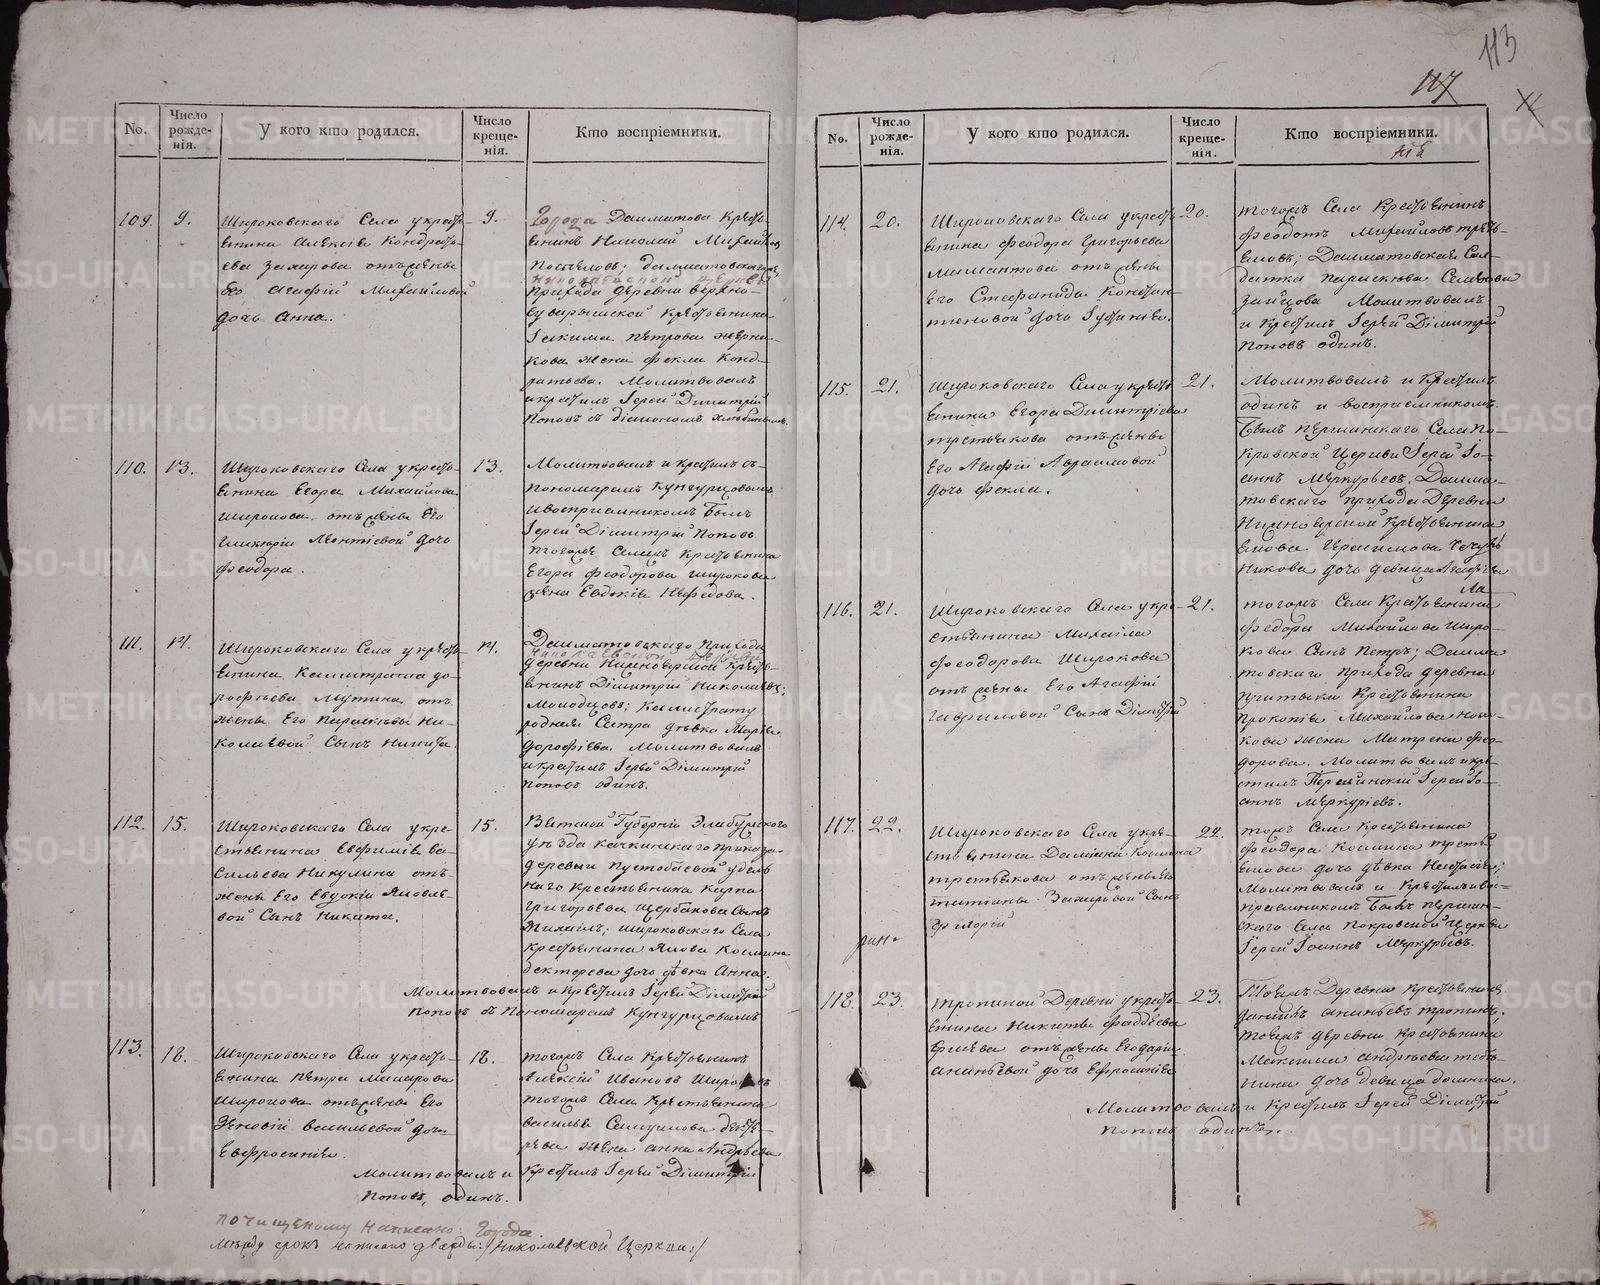 113
117
No.
Число рожде-нія.
У кого кто родился.
Число креще-нія.
Кто воспріемники.
109.
9.
Широковскаго Села у кресть-
янина Алексея Кондрать-
ева Захарова отъ жены
его Агафіи Михайловой
дочь Анна.
9.
Города Далматова Кресть-
янинъ Николай Михайловъ
Поспеловъ; Далматовскаго
прихода деревни Верхне-
крестьянина
Іакима Петрова
жена Фекла Конд-
ратьева. Молитвовалъ
и крестилъ Іерей Димитрій
Поповъ съ діакономъ
110.
13.
Широковскаго Села у кресть-
янина Егора Михайлова
Широкова отъ жены Его
Гликеріи Леонтіевой дочь
Феодора.
13.
Молитвовалъ и крестилъ съ
пономаремъ Кунгурцовымъ
и воспріемникомъ былъ
Іерей Димитрій Поповъ
тогоже Села крестьянина
Егора Феодорова Широкова
жена Евдокія Нефедова.
111.
14.
Широковскаго Села у кресть-
янина Каллистрата до-
рофеева Мутина отъ
жены Его Параскевы Ни-
колаевой Сынъ Никита.
14.
Далматовскаго Прихода
деревни Нижнеярской Кресть-
янинъ Димитрій Николаевъ
Молодцовъ; Каллистрату
родная Сестра девка Марія
дорофіева. Молитвовалъ
и крестилъ Іерей Димитрій
Поповъ одинъ.
112.
15.
Широковскаго Села у кре-
стьянина Евфимія Ва-
сильева Никулина отъ
жены Его Евдокіи Яковле-
вой Сынъ Никита.
15.
Вятской Губерніи Елабужского
уезда Качкинскаго приказа
деревни Пустобаевой удель-
наго крестьянина Карпа
Григорьева Щербакова Сынъ
Михаилъ; Широковскаго Села
крестьянина Якова Козмина
дектерева дочь девка Анна.
Молитвовалъ и крестилъ Іерей Димитрій
Поповъ съ Пономаремъ Кунгурцовымъ
113.
18.
Широковскаго Села у кресть-
янина Петра Макарова
Широкова отъ жены Его
Зеновіи Васильевой дочь
Евфросинія.
18.
тогоже Села Крестьянинъ
Алексій Ивановъ Широковъ
тогоже Села Крестьянина
Василья Самуилова декте-
рева жена Анна Андреева
Молитвовалъ и крестилъ Іерей Димитрій
Поповъ, одинъ.
По чищеному написано: Города
между срокъ написано дважды: /Николаевской Церкви:/
No.
Число рожде-нія.
У кого кто родился.
Число креще-нія.
Кто воспріемники.
114.
20.
Широковскаго Села у кресть-
янина Феодора Григорьева
Мамонтова отъ жены
Его Стефаниды Констан-
тиновой дочь Іустинія.
20.
тогожъ Села Крестьянинъ
Феодотъ Михайловъ треть-
яковъ; Далматовская Сол-
датка Параскева Семенова
Зайцова Молитвовалъ
и крестилъ Іерей Димитрій
Поповъ одинъ.
115.
21.
Широковскаго Села у кресть-
янина Егора Димитріева
третьякова отъ жены
Его Агафіи Авраамовой
дочь Фекла.
21.
Молитвовалъ и Крестилъ
одинъ и воспріемникомъ
былъ Першинскаго Села По-
кровской Церкви Іерей Іо-
аннъ Меркурьевъ. Далма-
товскаго прихода деревни
Нижнеярской Крестьянина
Якова Герасимова
дочь девица Агафія
116.
21.
Широковскаго Села у кре-
стьянина Михаила
Феодорова Широкова
отъ жены Его Агафіи
Гавриловой Сынъ Димитрій
21.
тогожъ Села Крестьянина
Федора Михайлова Широ-
кова Сынъ Петръ; Далма-
товскаго прихода деревни
Притыки Крестьянина
Прокопія Михайлова
жена Матрена Фео-
дорова. Молитвовалъ и кре-
стилъ Першинскій Іерей Іо-
аннъ Меркуріевъ.
117.
22.
Широковскаго Села у кре-
стьянина Даміана Козмина
третьякова отъ жены его
татіаны Захаровой Сынъ
22.
тогожъ Села Крестьянина
Феодора Козмина треть-
якова дочь девка Настасія;
Молитвовалъ и крестилъ и вос-
пріемникомъ былъ Першин-
скаго Села Покровской Церкви
Іерей Іоаннъ Меркурьевъ.
118.
23.
тропиной Деревни у кресть-
янина Никиты Фаддеева
отъ жены его Дарьи
Ананьевой дочь Евфросинія
23.
Тоежъ Деревни Крестьянинъ
Даніилъ Ананьевъ тропинъ;
тоежъ деревни крестьянина
Максима Андреева
дочь девица Домника.
Молитвовалъ и Крестилъ Іерей Димитрій
Поповъ одинъ.
METRIKI.GASO-URAL.RU